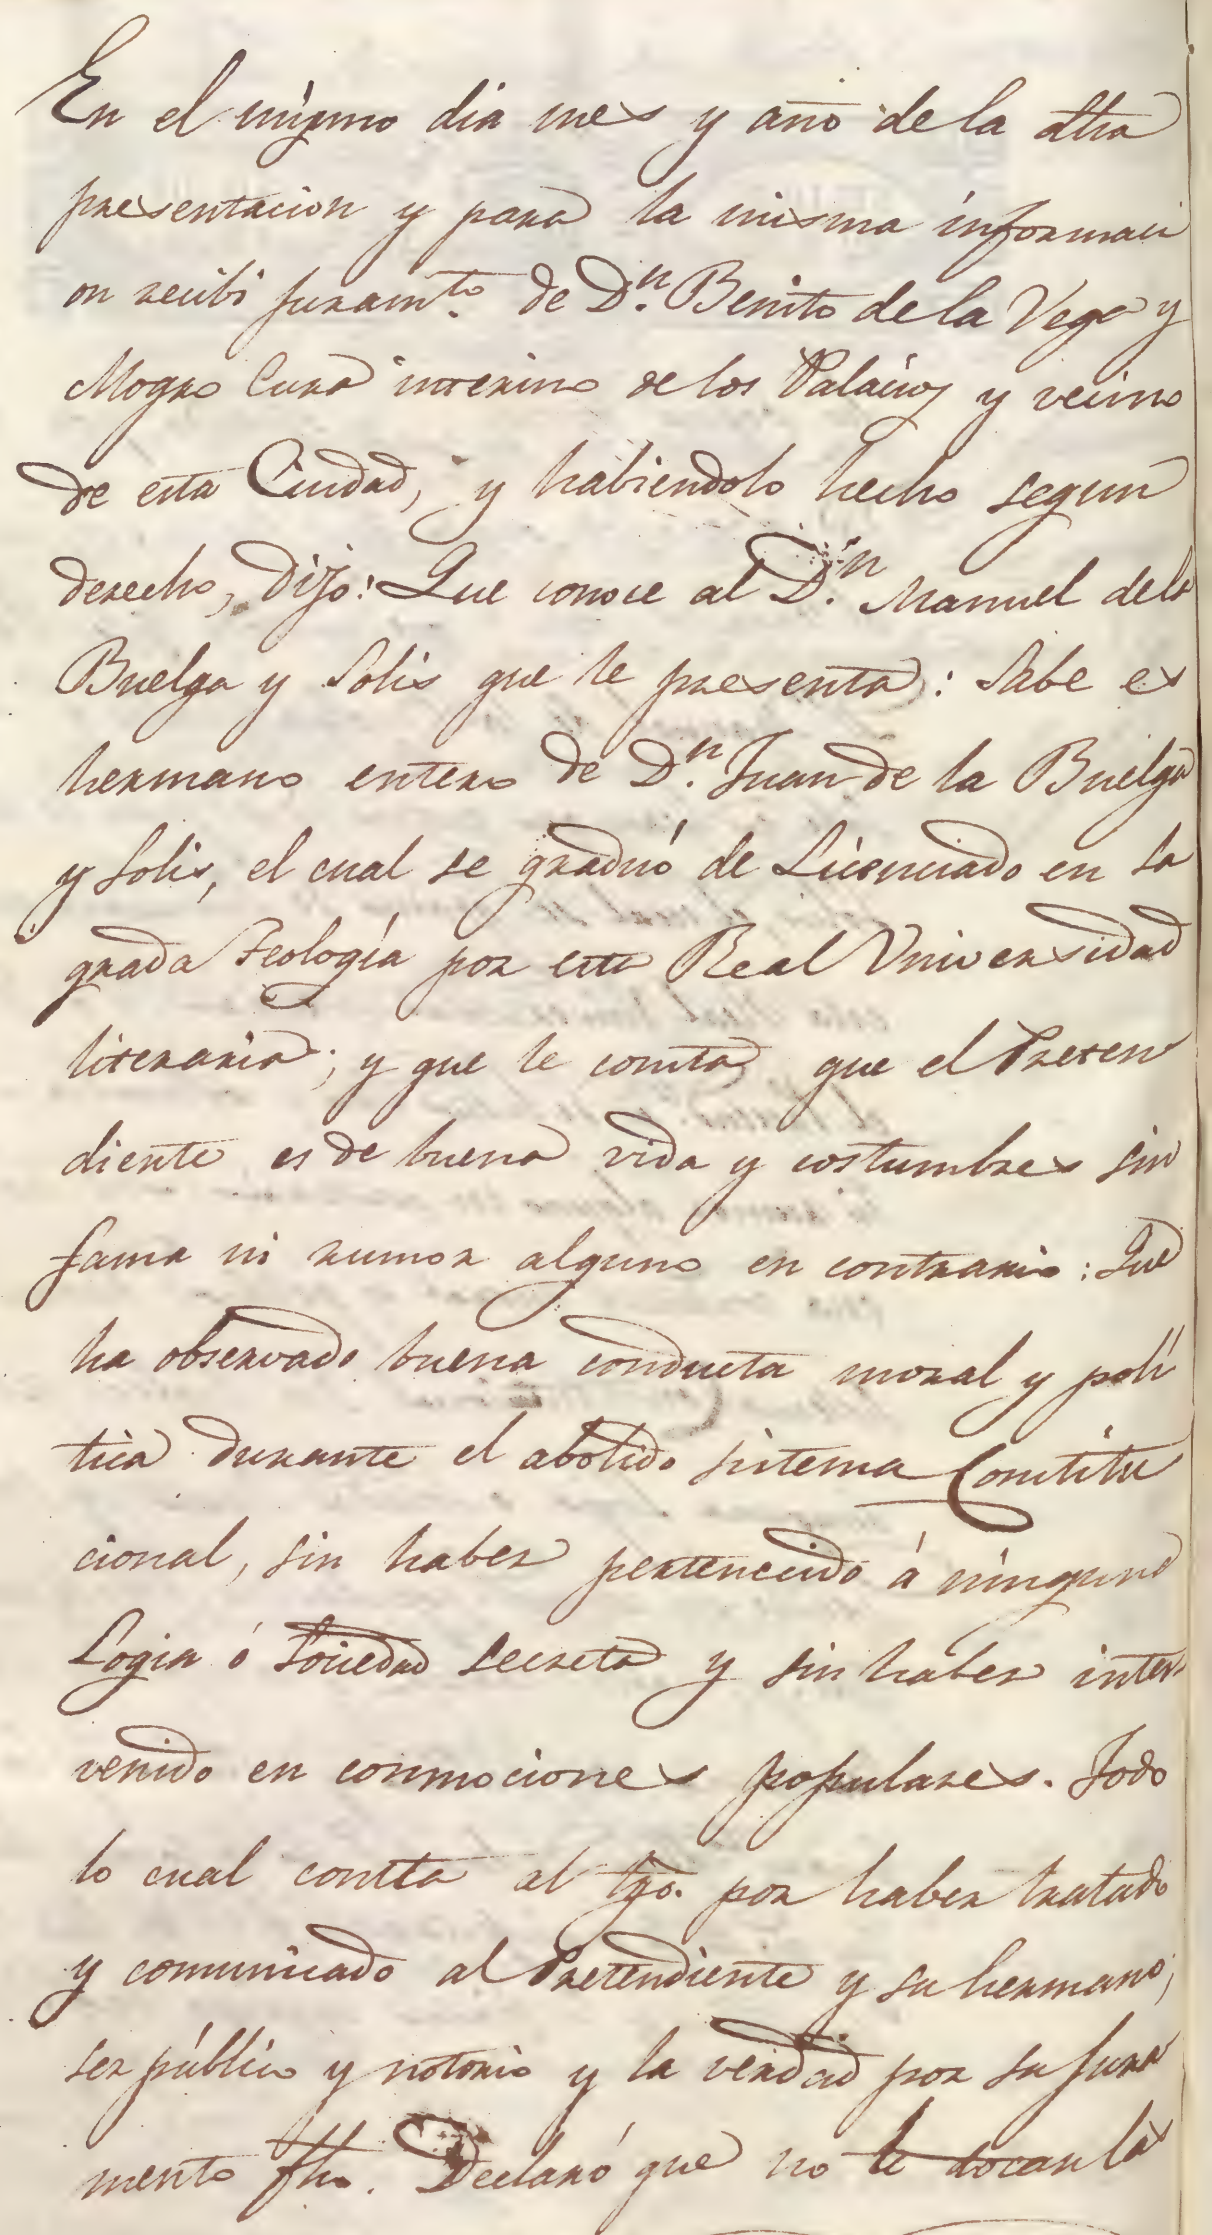 En el mismo dia mes y año de la dha
presentacion y para la misma informaci
on recibi juramto. de Dn. Benito de la Vega y
Mogro Cura interino de los Palacios y vecino
de esta Ciudad, y habiendolo hecho segun
derecho, dijo: Que conoce al Dn. Manuel de la
Buelga y Solis que le presenta: Sabe es
hermano entero de Dn. Juan de la Buelga
y Solis, el cual se graduó de Licenciado en Sa
grada Teología por esta Real Universidad
literaria; y que le consta que el Preten
diente es de buena vida y costumbres sin
fama ni rumor alguno en contrario: Que
ha observado buena conducta moral y polí
tica durante el abolido sistema Constitu
cional, sin haber pertenecido á ninguna
Logia ó Sociedad secreta y sin haber inter
venido en conmociones populares. Todo
lo cual consta al tgo. por haber tratado
y comunicado al Pretendiente y su hermano,
ser público y notorio y la verdad por su jura
mento fho. Declaró que no le tocan las